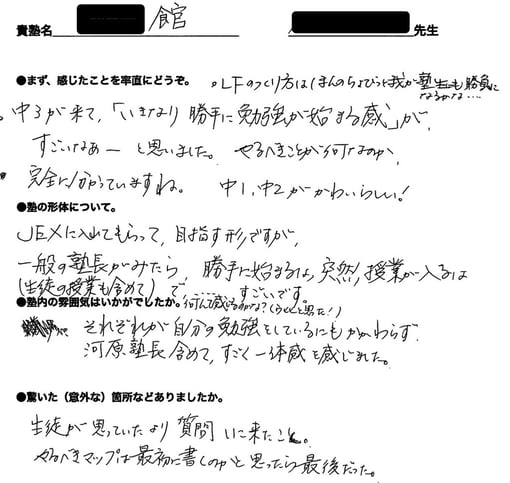 貴塾名 館 先生
●まず、感じたことを率直にどうぞ。 。LFのつくり方はほんのちょびっと我が塾生も勝負に
なるかな…
。中3が来て,「いきなり勝手に勉強が始まる感」が,
すごいなあーと思いました。 やるべきことが何なのか,
完全に分かっていますね。 中1,中2がかわいらしい!
●塾の形体について。
JEXに入れてもらって,目指す形ですが,
一般の塾長がみたら,勝手に始まるは,突然,授業が入るは
(生徒の授業も含めて)で…… すごいです。
●塾内の雰囲気はいかがでしたか。 何て感じるのかな?
それぞれが自分の勉強をしているにもかかわらず
河原塾長含めて,すごく一体感を感じました。
●驚いた(意外な)箇所などありましたか。
生徒が思っていたより質問しに来たこと。
やるべきマップは最初に書くのかと思ったら最後だった。